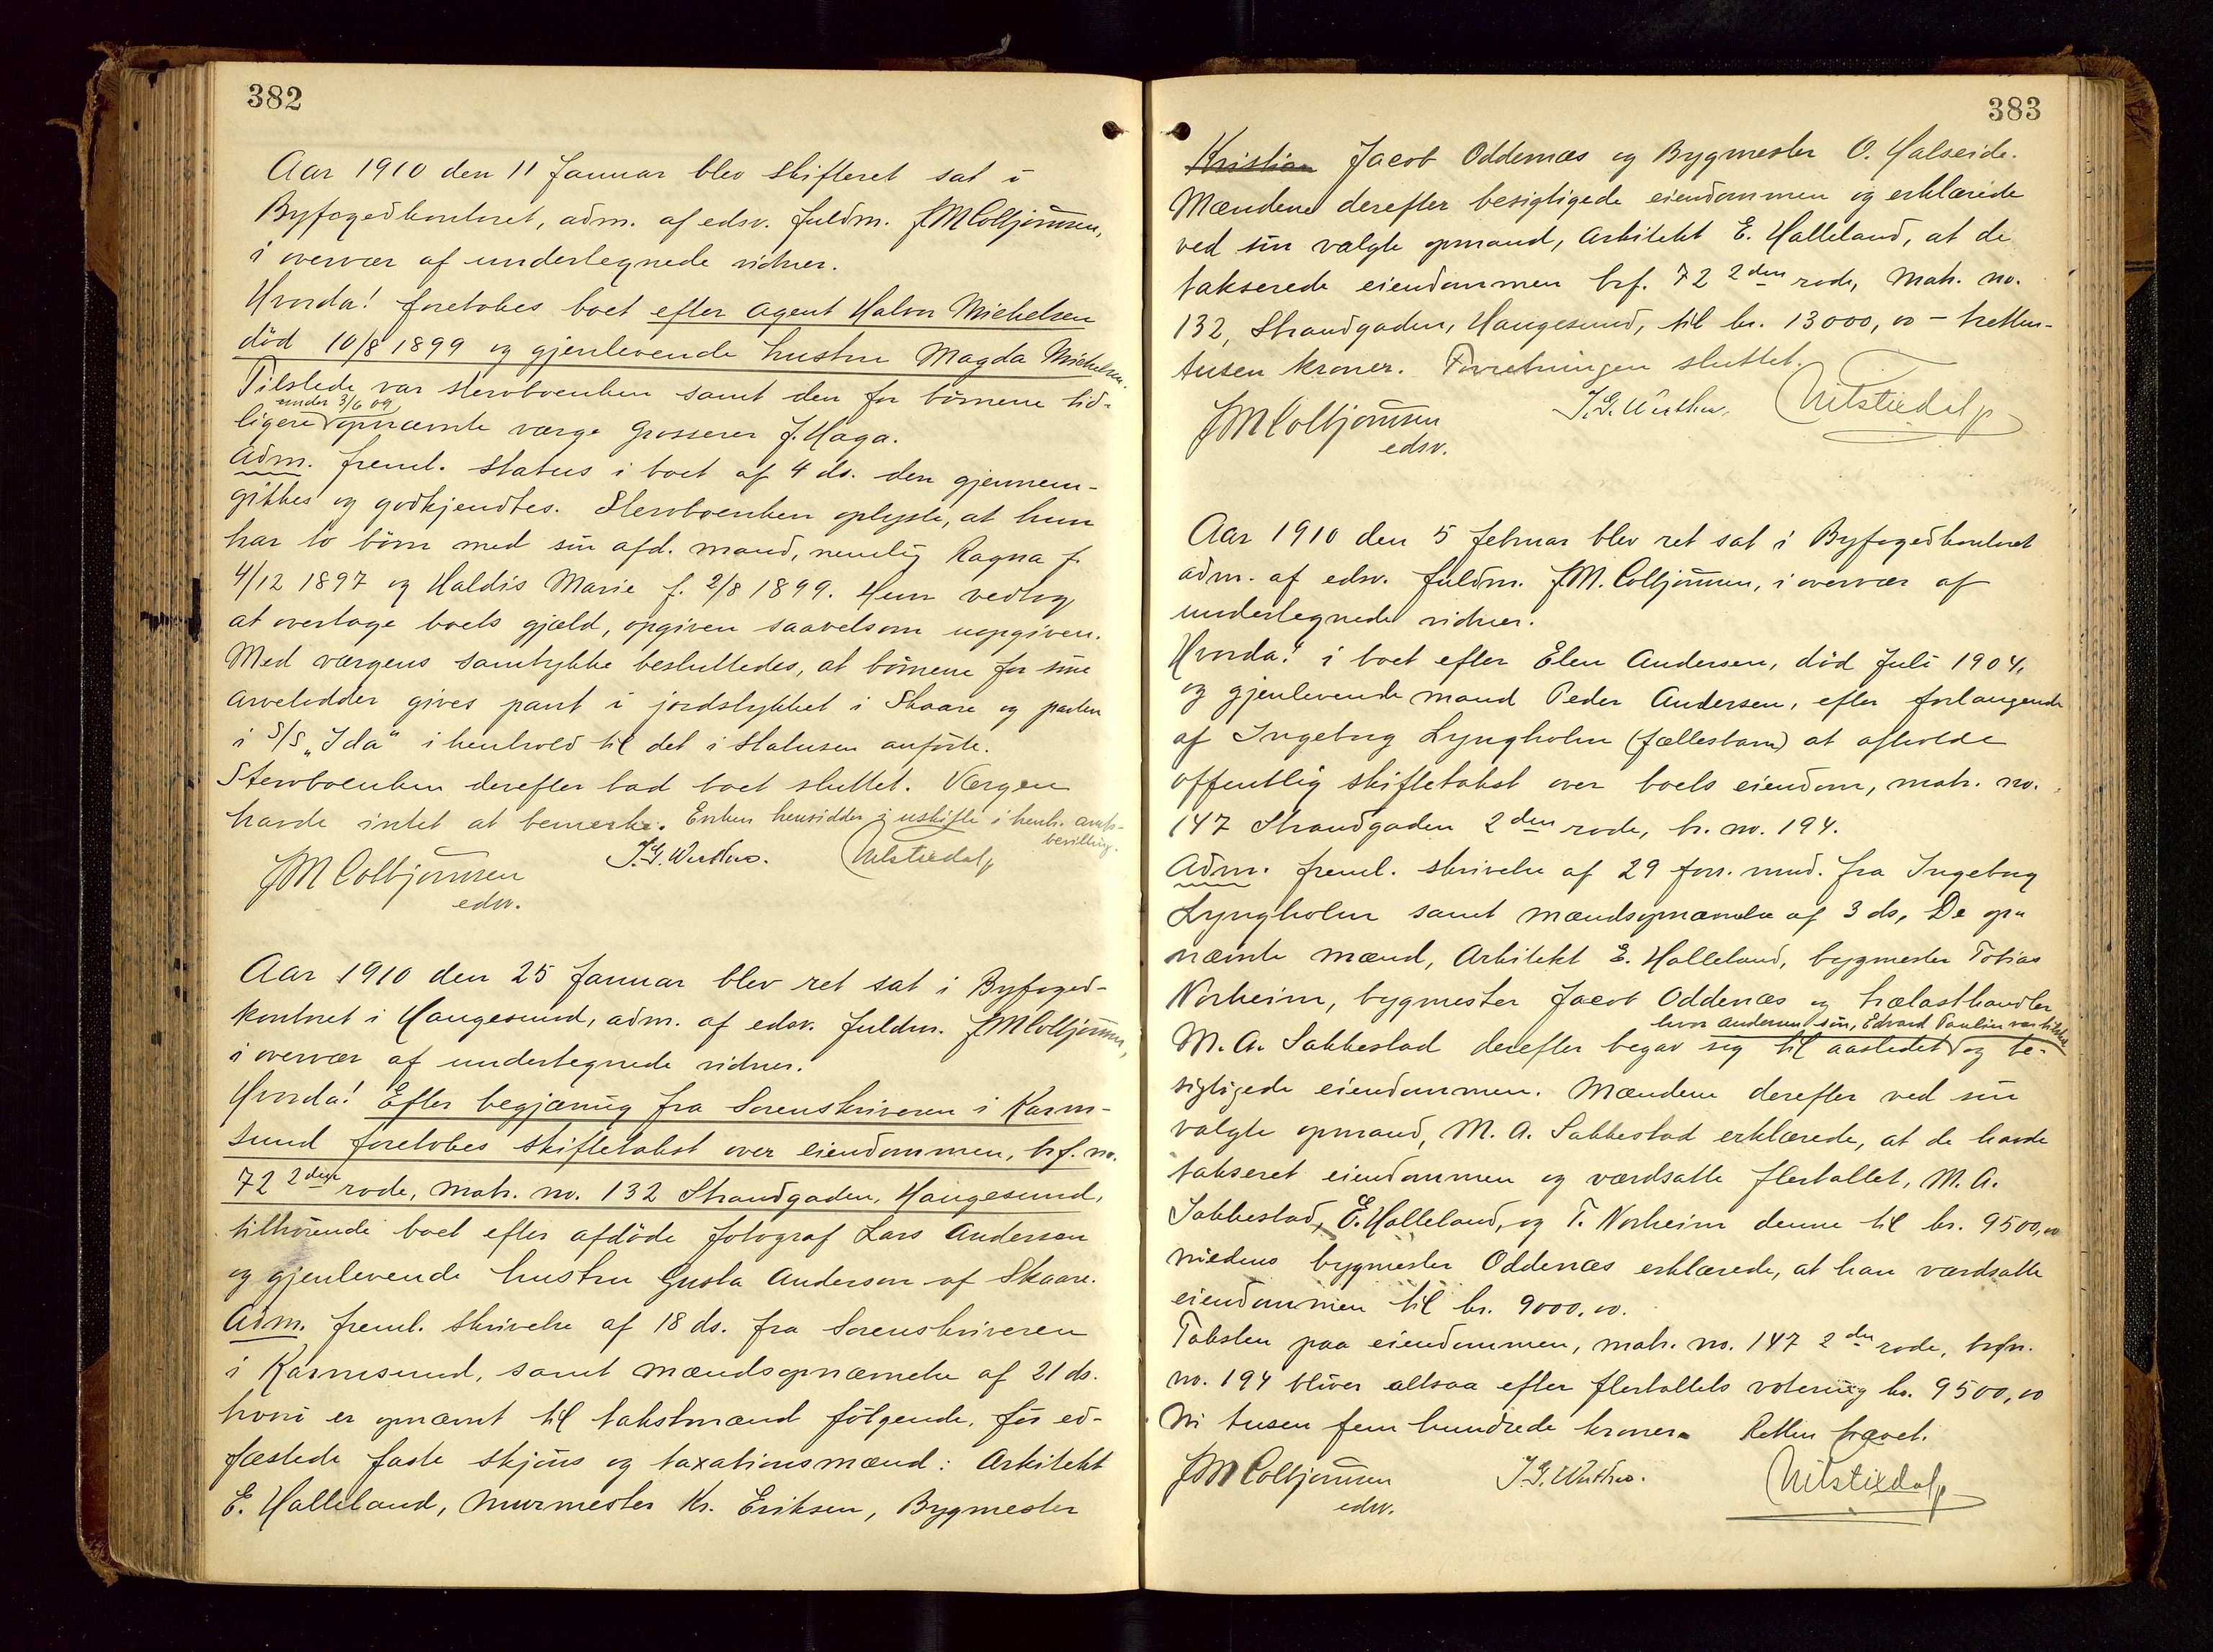 382
Aar 1910 den 11 Januar blev skifteret sat i
Byfogedkontoret, adm. af edsv. fuldm. JMColbjörnsen,
i overvær af undertegnede vidner.
Hvorda! foretokes boet efter Agent Halvor Michelsen
död 10/8 1899 og gjenlevende hustru Magda Michelsen.
Tilstede var stervboenken samt den for börnene tid-
under 3/6 09
ligere opnævnte værge Grosserer J. Haga.
Adm. freml. status i boet af 4 ds. den gjennem-
gikkes og godkjendtes. Stervboenken oplyste, at hun
har to börn med sin afd. mand, nemlig Ragna f.
4/12 1897 og Haldis Marie f. 2/8 1899. Hun vedtog
at overtage boets gjæld, opgiven saavelsom uopgiven.
Med værgens samtykke besluttedes, at börnene for sine
arvelodder gives pant i jordstykket i Skaare og parten
i S/S „Ida" i henhold til det i statusen anförte.
Stervboenken derefter bad boet sluttet. Værgen
havde intet at bemerke. Enken hensidder i uskifte i henh. amts-
bevilling.
JMColbjörnsen
edsv.
Aar 1910 den 25 Januar blev ret sat i Byfoged-
kontoret i Haugesund, adm. af edsv. fuldm. JMColbjörnsen,
i overvær af undertegnede vidner.
Hvorda! Efter begjæring fra Sorenskriveren i Karm-
sund foretokes skiftetakst over eiendommen, brf. no.
72 2den rode, matr. no. 132 Strandgaden, Haugesund,
tilhörende boet efter afdöde fotograf Lars Andersen
og gjenlevende hustru Gusta Andersen af Skaare.
Adm. freml. skrivelse af 18 ds. fra Sorenskriveren
i Karmsund, samt mændsopnævnelse af 21 ds.
hvori er opnævnt til takstmænd fölgende, för ed-
fæstede faste skjöns og taxationsmænd: Arkitekt
E. Halleland, Murmester Kr. Eriksen, Bygmester
383
Kristian Jacob Oddenæs og Bygmester O. Halseide.
Mændene derefter besigtigede eiendommen og erklærede
ved sin valgte opmand, Arkitekt E. Halleland, at de
takserede eiendommen brf. 72 2den rode, Matr. no.
132, Strandgaden, Haugesund, til kr. 13000,00 – tretten-
tusen kroner. Forretningen sluttet.
JMColbjörnsen
edsv.
Aar 1910 den 5 Februar blev ret sat i Byfogedkontoret
adm. af edsv. fuldm. JM. Colbjörnsen, i overvær af
undertegnede vidner.
Hvorda! i boet efter Elen Andersen, död Juli 1904,
og gjenlevende mand Peder Andersen, efter forlangende
af Ingeborg Lyngholm (fællesbarn) at afholde
offentlig skiftetakst over boets eiendom, matr. no.
147 Strandgaden 2den rode, br. no. 194.
Adm. freml. skrivelse af 29 forr. mnd. fra Ingeborg
Lyngholm samt mændsopnævnelse af 3 ds. De op-
nævnte mænd, Arkitekt E. Halleland, bygmester Tobias
Norheim, bygmester Jacob Oddenæs og trælasthandler
hvor Andersens sön, Edvard Paulin var tilstede
M. A. Sakkestad derefter begav sig til aastedet og be-
sigtigede eiendommen. Mændene derefter ved sin
valgte opmand, M. A. Sakkestad erklærede, at de havde
takseret eiendommen og værdsatte flertallet, M. A.
Sakkestad, E. Halleland, og T. Norheim denne til kr. 9500,00
medens bygmester Oddenæs erklærede, at han værdsatte
eiendommen til kr. 9000,00.
Taksten paa eiendommen, matr. no. 147 2den rode, brfr.
no. 194 bliver altsaa efter flertallets votering kr. 9500,00
Ni tusen fem hundrede kroner. Retten hævet.
JMColbjörnsen
edsv.